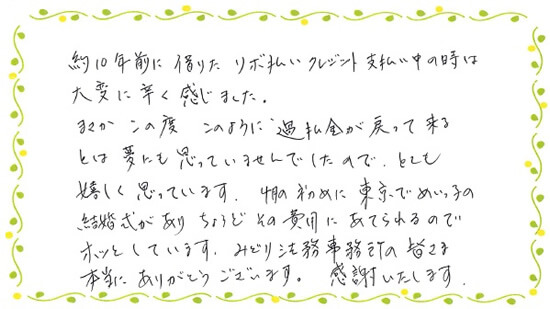 約10年前に借りたリボ払いクレジット支払い中の時は
大変に辛く感じました。
まさかこの度このように過払金が戻って来る
とは夢にも思っていませんでしたので、とても
嬉しく思っています。4月の初めに東京でめいっ子の
結婚式がありちょうどその費用にあてられるので
ホッとしています。みどり法務事務所の皆さま
本当にありがとうございます。感謝いたします。